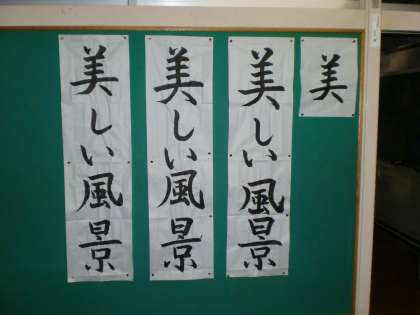 美
美しい風景
美しい風景
美しい風景